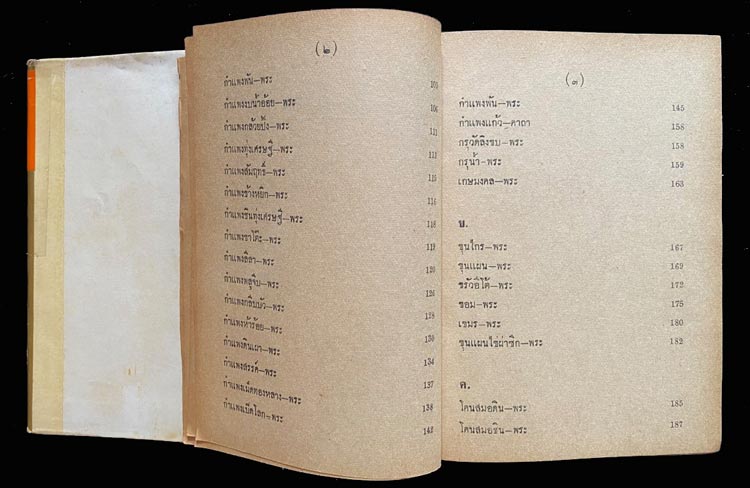 (๒)
กำแพงพัน—พระ 105
กำแพงงบน้ำอ้อย—พระ 106
กำแพงกลีบบัว—พระ 111
กำแพงทุ่งเศรษฐี—พระ 111
กำแพงสัมฤทธิ์—พระ 115
กำแพงช้างหยิก—พระ 116
กำแพงชินทุ่งเศรษฐี—พระ 118
กำแพงขาโต๊ะ—พระ 119
กำแพงลีลา—พระ 120
กำแพงพลูจีบ—พระ 126
กำแพงกลีบบัว—พระ 128
กำแพงห้าร้อย—พระ 130
กำแพงดินเผา—พระ 134
กำแพงสรรค์—พระ 137
กำแพงเม็ดทองหลาง—พระ 138
กำแพงเปิดโลก—พระ 142
(๓)
กำแพงพัน—พระ 145
กำแพงแก้ว—คาถา 158
กรุวัดลิงขบ—พระ 158
กรุน้ำ—พระ 159
เกษมงคล—พระ 163
ข.
ขุนไกร—พระ 167
ขุนแผน—พระ 169
ขรัวอีโต้—พระ 172
ขอม—พระ 175
เขมร—พระ 180
ขุนแผนไข่ผ่าซีก—พระ 182
ค.
โคนสมอดิน—พระ 185
โคนสมอชิน—พระ 187